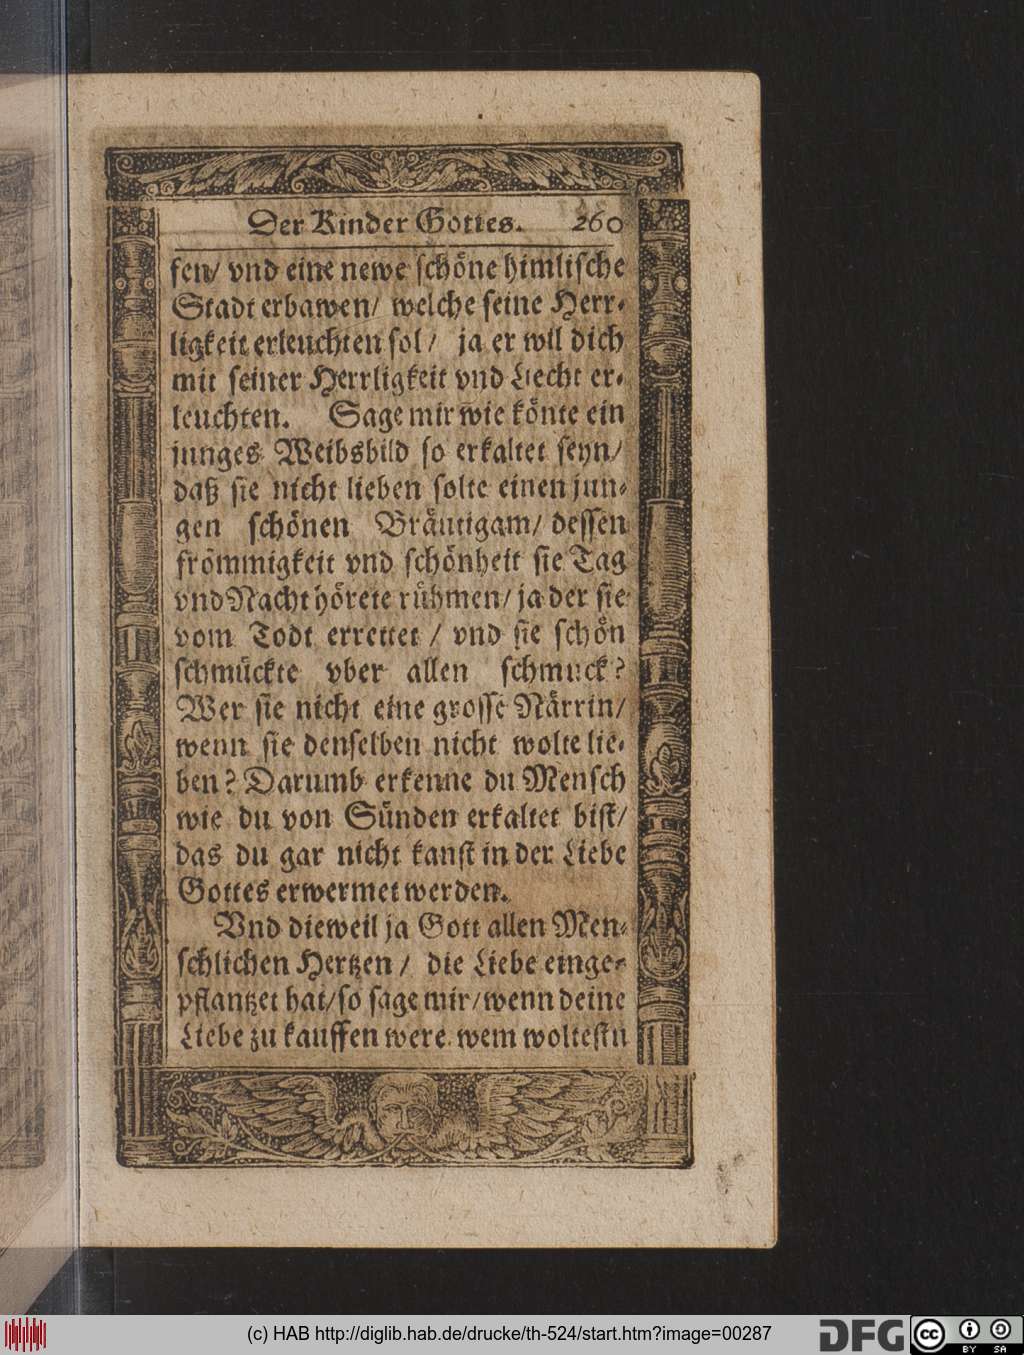 Der Kinder Gottes. 260
fen/ vnd eine newe schöne himlische
Stadt erbawen/ welche seine Herr-
ligkeit erleuchten sol/ ja er wil dich
mit seiner Herrligkeit vnd Liecht er-
leuchten. Sage mir wie könte ein
junges Weibsbild so erkaltet seyn/
daß sie nicht lieben solte einen jun-
gen schönen Bräutigam/ dessen
frömmigkeit vnd schönheit sie Tag
vnd Nacht hörete rühmen/ ja der sie
vom Todt errettet / vnd sie schön
schmückte vber allen schmuck?
Wer sie nicht eine grosse Närrin/
wenn sie denselben nicht wolte lie-
ben? Darumb erkenne du Mensch
wie du von Sünden erkaltet bist/
das du gar nicht kanst in der Liebe
Gottes erwermet werden.
Vnd dieweil ja Gott allen Men-
schlichen Hertzen / die Liebe einge-
pflantzet hat/ so sage mir/ wenn deine
Liebe zu kauffen were wem woltestu
(c) HAB http://diglib.hab.de/drucke/th-524/start.htm?image=00287
DFG
cc BY SA